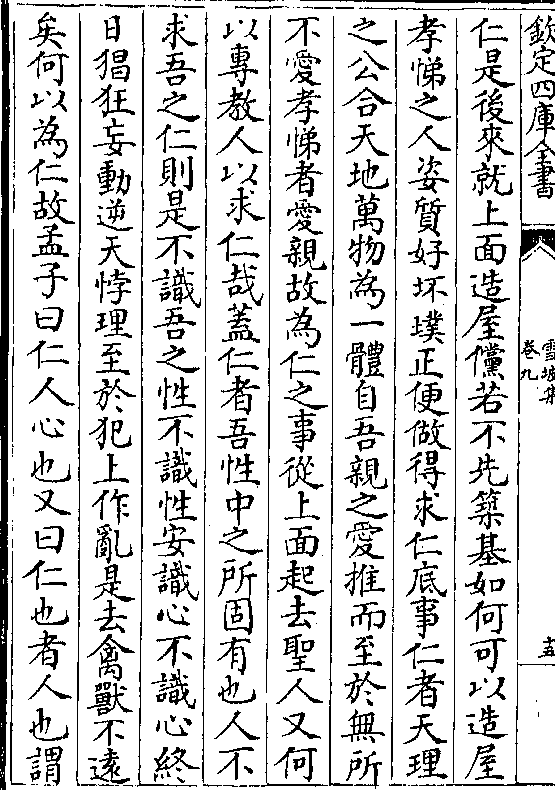 欽定四庫全書
雪坡集
卷九
十五
仁是後來就上面造屋儻若不先築基如何可以造屋
孝悌之人姿質好坏墣正便做得求仁底事仁者天理
之公合天地萬物為一體自吾親之愛推而至於無所
不愛孝悌者愛親故為仁之事從上面起去聖人又何
以專教人以求仁哉蓋仁者吾性中之所固有也人不
求吾之仁則是不識吾之性不識性安識心不識心終
日猖狂妄動逆天悖理至於犯上作亂是去禽獸不遠
矣何以為仁故孟子曰仁人心也又曰仁也者人也謂